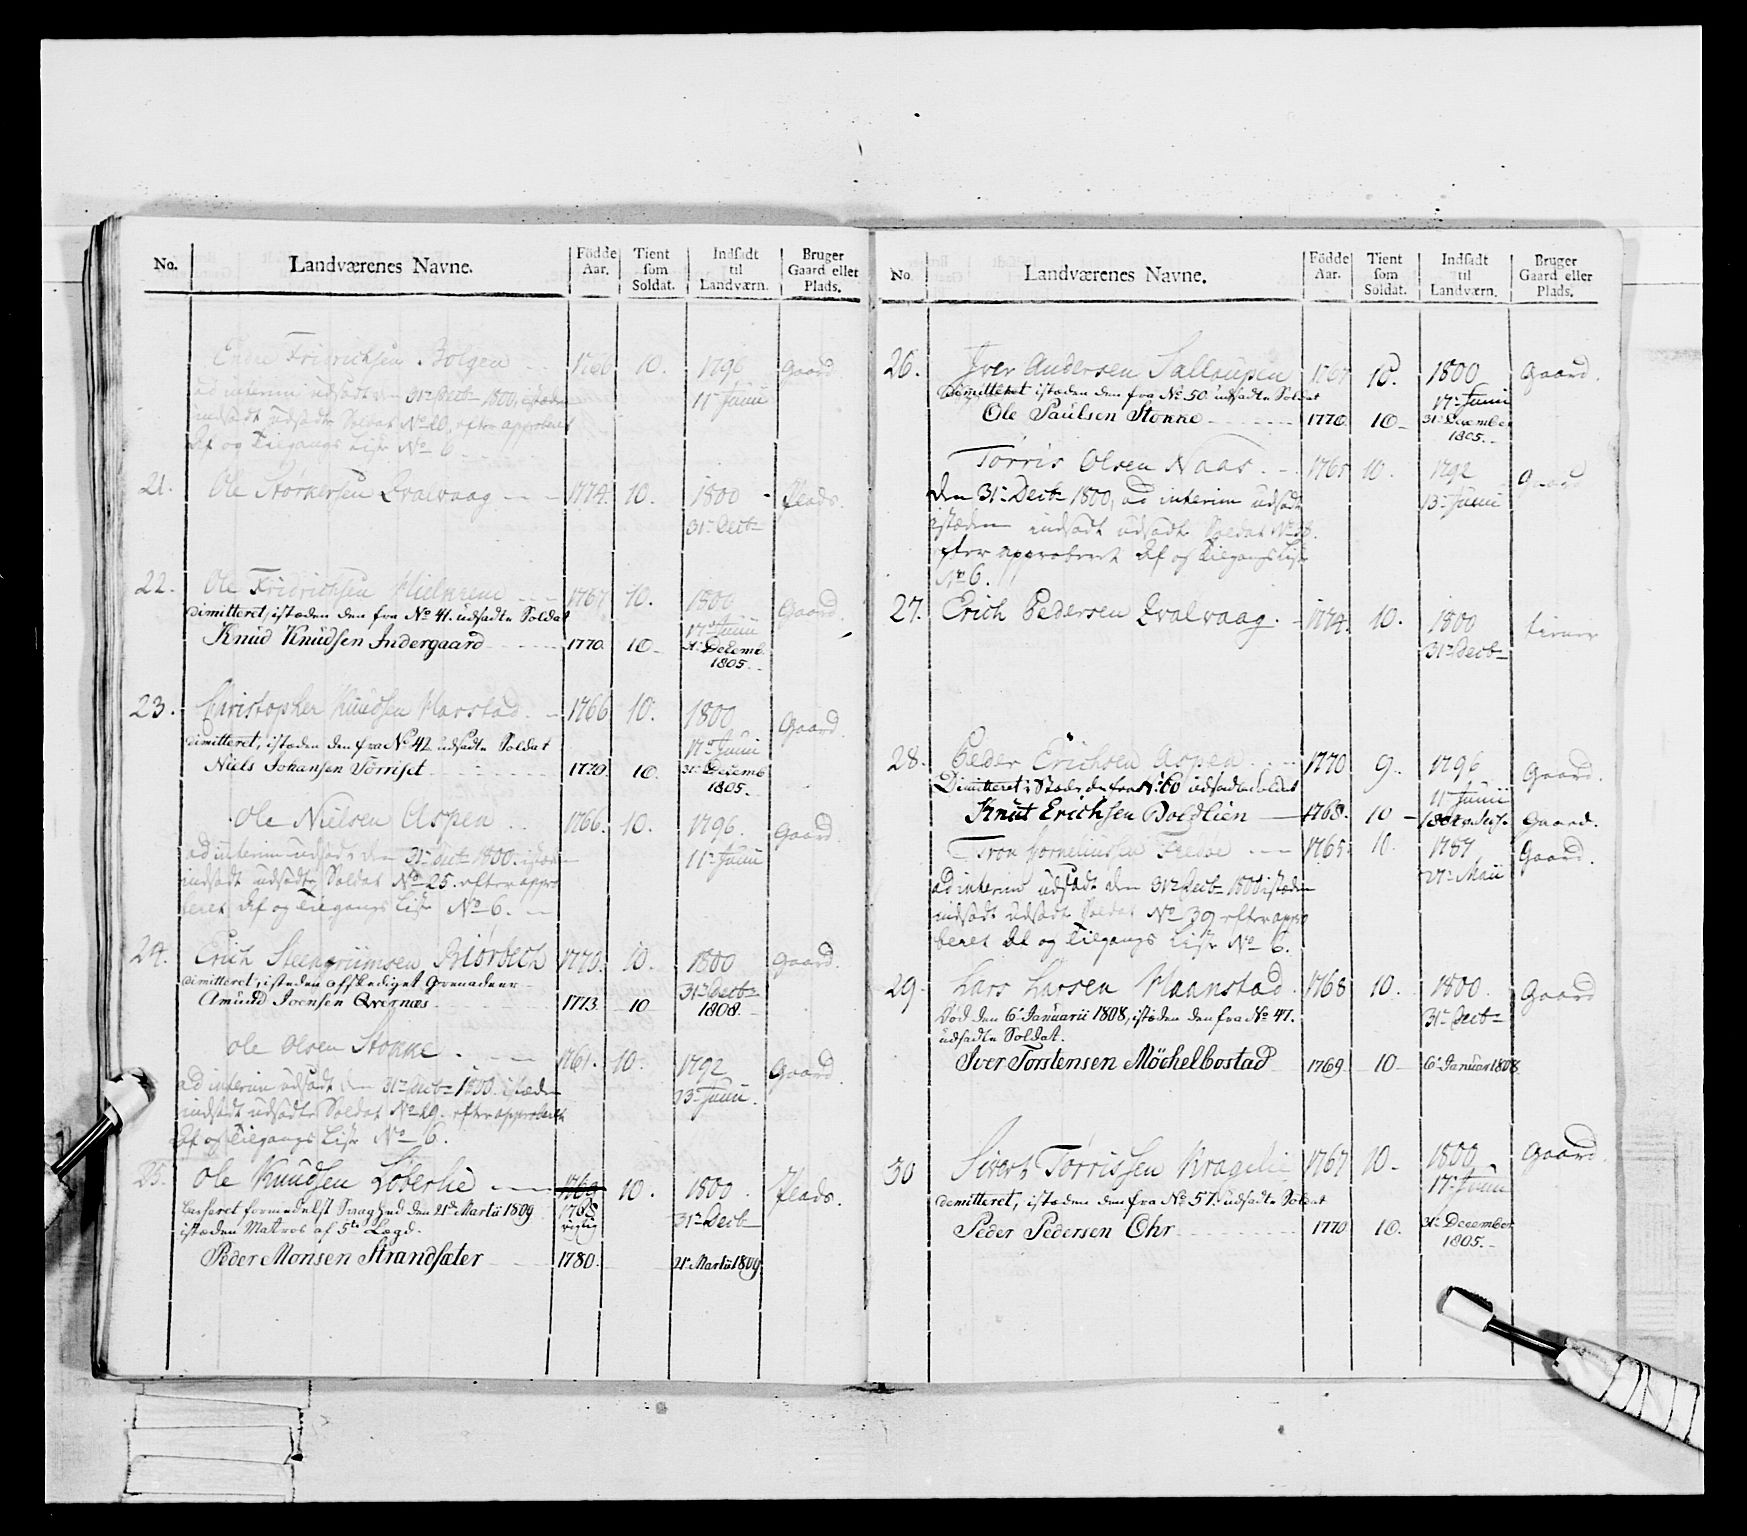 No. Landværenes Navne. Födde Aar. Tient som Soldat. Indsadt til Landværn. Bruger Gaard eller Plads.
Endre Fridrichsen Bolgen 1766 10. 1796 Gaard
ad interim udsadt den 31te Decbr 1800, istæden 11te Junii
indsadt udsadte Soldat No 20, efter approberet
Af og Tilgangs Liste No 6.
21. Ole Storkersen Qvalvaag 1774. 10. 1800 Plads.
31te Decbr
22. Ole Fridrichsen Mielkrem 1767 10. 1800 Gaard.
dimitteret, istæden den fra No 41. udsadte Soldat 17de Junii
Knud Knudsen Indergaard 1770. 10 31te Decemb.
1805.
23. Christopher Knudsen Harstad. 1766 10. 1800 Gaard
dimitteret, istæden den fra No 42 udsadte Soldat 17de Junii
Niels Johansen Vorriset 1770. 10. 31te Decemb.
1805.
Ole Nielsen Aspen 1766. 10. 1796. Gaard
ad interim udsadt den 31te Decbr 1800. istæden 11te Junii
indsadt udsadte Soldat No 25. efter appro
beret Af og Tilgangs Liste No 6.
24. Erich Steengrimsen Biørbech 1770. 10. 1800 Gaard.
dimitteret, isteden affskediget Grenadeer 31te Decbr
Amund Ivensen Qvernæs 1773. 10 1808.
Ole Olsen Stokke 1761. 10. 1792 Gaard
ad interim udsadt den 31te Decbr 1800. istæden 13de Junii.
indsadt udsadte Soldat No 29. efter approberet
Af og Tilgangs Liste No 6.
25. Ole Knudsen Løserlie 1769 10. 1800. Plads.
Casseret formedelst Svaghed den 21de Martii 1809 1768 rigtig 31te Decbr
istæden Matros af 5te Lægd.
Peder Monsen Strandsæter 1780. 21de Martii 1809
No. Landværenes Navne. Födde Aar. Tient som Soldat. Indsadt til Landværn. Bruger Gaard eller Plads.
26. Iver Andersen Sallaupen 1767 10. 1800 Gaard.
Dimitteret istæden den fra No 50 udsadte Soldat 17de Junii
Ole Paulsen Stokke 1770. 10 31te December
1805.
Torris Olsen Naas 1765 10. 1792 Gaard
Den 31te Decbr 1800, ad interim udsadt 13de Junii
istæden indsadt udsadte Soldat No
efter approberet Af og Tilgangs Liste
No 6.
27. Erich Pedersen Qvalvaag. 1774. 10. 1800 tiener
31te Decbr
28. Peder Erichsen Aspen 1770 9. 1796 Gaard.
Dimitteret i Stæden den fra No 60 udsadte Soldat 11te Junii
Knut Erichsen Boldlien 1768. 10 Gaard.
Tron Corneliussen Fredse 1765. 10. 1787 Gaard.
ad interim udsadt den 31te Decbr 1800 istæden 27de Maii
indsadt udsadt Soldat No 39 efter appro
beret Af og Tilgangs Liste No 6.
29. Lars Larsen Maanstad. 1768 10. 1800. Gaard
Død den 6te Januarii 1808, istæden den fra No 47. 31te Decbr
udsadte Soldat.
Iver Torstensen Møchelbostad 1769 10 6te Januar 1808
30 Sivert Torrissen Kragelie 1767 10 1800 Gaard
demitteret, istæden den fra No 57. udsadte Soldat 17de Junii
Peder Pedersen Ohr 1770 10. 31te December
1805.